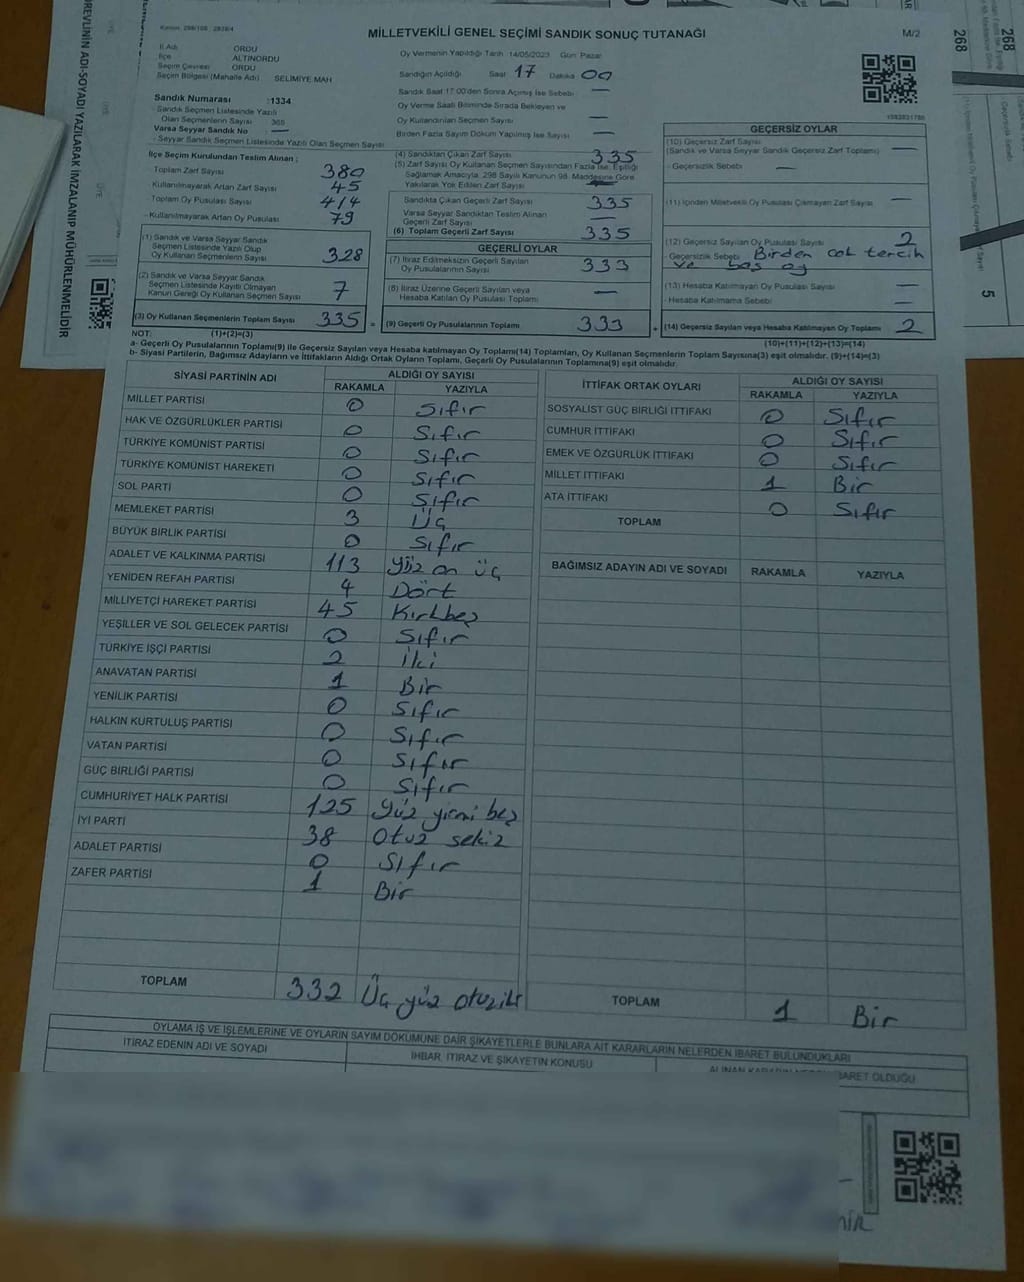 MİLLETVEKİLİ GENEL SEÇİMİ SANDIK SONUÇ TUTANAĞI
M/2
268
268
REVLİNİN ADI-SOYADI YAZILARAK İMZALANIP MÜHÜRLENMELİDİR
İl Adı ORDU
İlçe ALTINORDU
Seçim Çevresi ORDU
Seçim Bölgesi (Mahalle Adı) SELİMİYE MAH
Sandık Numarası :1334
Sandık Seçmen Listesinde Yazılı
Olan Seçmenlerin Sayısı 365
Varsa Seyyar Sandık No —
Seyyar Sandık Seçmen Listesinde Yazılı Olan Seçmen Sayısı
Oy Vermenin Yapıldığı Tarih 14/05/2023 Gün Pazar
Sandığın Açıldığı Saat 17 Dakika 00
Sandık Saat 17:00'den Sonra Açılmış İse Sebebi —
Oy Verme Saati Bitiminde Sırada Bekleyen ve
Oy Kullandırılan Seçmen Sayısı —
Birden Fazla Sayım Döküm Yapılmış İse Sayısı —
İlçe Seçim Kurulundan Teslim Alınan ;
Toplam Zarf Sayısı 380
Kullanılmayarak Artan Zarf Sayısı 45
Toplam Oy Pusulası Sayısı 414
Kullanılmayarak Artan Oy Pusulası 79
(1) Sandık ve Varsa Seyyar Sandık
Seçmen Listesinde Yazılı Olup
Oy Kullanan Seçmenlerin Sayısı 328
(2) Sandık ve Varsa Seyyar Sandık
Seçmen Listesinde Kaydı Olmayan
Kanun Gereği Oy Kullanan Seçmen Sayısı 7
(3) Oy Kullanan Seçmenlerin Toplam Sayısı 335 =
(4) Sandıktan Çıkan Zarf Sayısı 335
(5) Zarf Sayısı Oy Kullanan Seçmen Sayısından Fazla İse, Eşitliği
Sağlamak Amacıyla, 298 Sayılı Kanunun 98. Maddesine Göre
Yakılarak Yok Edilen Zarf Sayısı —
Sandıkta Çıkan Geçerli Zarf Sayısı 335
Varsa Seyyar Sandıktan Teslim Alınan
Geçerli Zarf Sayısı —
(6) Toplam Geçerli Zarf Sayısı 335
GEÇERLİ OYLAR
(7) İtiraz Edilmeksizin Geçerli Sayılan
Oy Pusulalarının Sayısı 333
(8) İtiraz Üzerine Geçerli Sayılan veya
Hesaba Katılan Oy Pusulası Toplamı —
(9) Geçerli Oy Pusulalarının Toplamı 333
GEÇERSİZ OYLAR
(10) Geçersiz Zarf Sayısı
(Sandık ve Varsa Seyyar Sandık Geçersiz Zarf Toplamı) —
- Geçersizlik Sebebi —
(11) İçinden Milletvekili Oy Pusulası Çıkmayan Zarf Sayısı —
(12) Geçersiz Sayılan Oy Pusulası Sayısı 2
- Geçersizlik Sebebi Birden çok tercih
ve boş oy
(13) Hesaba Katılmayan Oy Pusulası Sayısı —
- Hesaba Katılmama Sebebi —
(14) Geçersiz Sayılan veya Hesaba Katılmayan Oy Toplamı 2
NOT: (1)+(2)=(3)
(10)+(11)+(12)+(13)=(14)
a- Geçerli Oy Pusulalarının Toplamı(9) ile Geçersiz Sayılan veya Hesaba katılmayan Oy Toplamı(14) Toplamları, Oy Kullanan Seçmenlerin Toplam Sayısına(3) eşit olmalıdır. (9)+(14)=(3)
b- Siyasi Partilerin, Bağımsız Adayların ve İttifakların Aldığı Ortak Oyların Toplamı, Geçerli Oy Pusulalarının Toplamına(9) eşit olmalıdır.
SİYASİ PARTİNİN ADI ALDIĞI OY SAYISI
RAKAMLA YAZIYLA
MİLLET PARTİSİ 0 Sıfır
HAK VE ÖZGÜRLÜKLER PARTİSİ 0 Sıfır
TÜRKİYE KOMÜNİST PARTİSİ 0 Sıfır
TÜRKİYE KOMÜNİST HAREKETİ 0 Sıfır
SOL PARTİ 0 Sıfır
MEMLEKET PARTİSİ 3 Üç
BÜYÜK BİRLİK PARTİSİ 0 Sıfır
ADALET VE KALKINMA PARTİSİ 113 Yüz on üç
YENİDEN REFAH PARTİSİ 4 Dört
MİLLİYETÇİ HAREKET PARTİSİ 45 Kırkbeş
YEŞİLLER VE SOL GELECEK PARTİSİ 0 Sıfır
TÜRKİYE İŞÇİ PARTİSİ 2 İki
ANAVATAN PARTİSİ 1 Bir
YENİLİK PARTİSİ 0 Sıfır
HALKIN KURTULUŞ PARTİSİ 0 Sıfır
VATAN PARTİSİ 0 Sıfır
GÜÇ BİRLİĞİ PARTİSİ 0 Sıfır
CUMHURİYET HALK PARTİSİ 125 Yüz yirmi beş
İYİ PARTİ 38 Otuz sekiz
ADALET PARTİSİ 0 Sıfır
ZAFER PARTİSİ 1 Bir
TOPLAM 332 Üç yüz otuziki
İTTİFAK ORTAK OYLARI ALDIĞI OY SAYISI
RAKAMLA YAZIYLA
SOSYALİST GÜÇ BİRLİĞİ İTTİFAKI 0 Sıfır
CUMHUR İTTİFAKI 0 Sıfır
EMEK VE ÖZGÜRLÜK İTTİFAKI 0 Sıfır
MİLLET İTTİFAKI 1 Bir
ATA İTTİFAKI 0 Sıfır
TOPLAM
BAĞIMSIZ ADAYIN ADI VE SOYADI RAKAMLA YAZIYLA
TOPLAM 1 Bir
OYLAMA İŞ VE İŞLEMLERİNE VE OYLARIN SAYIM DÖKÜMÜNE DAİR ŞİKAYETLERLE BUNLARA AİT KARARLARIN NELERDEN İBARET BULUNDUKLARI
İTİRAZ EDENİN ADI VE SOYADI
İHBAR, İTİRAZ VE ŞİKAYETİN KONUSU
BARET OLDUĞU
5